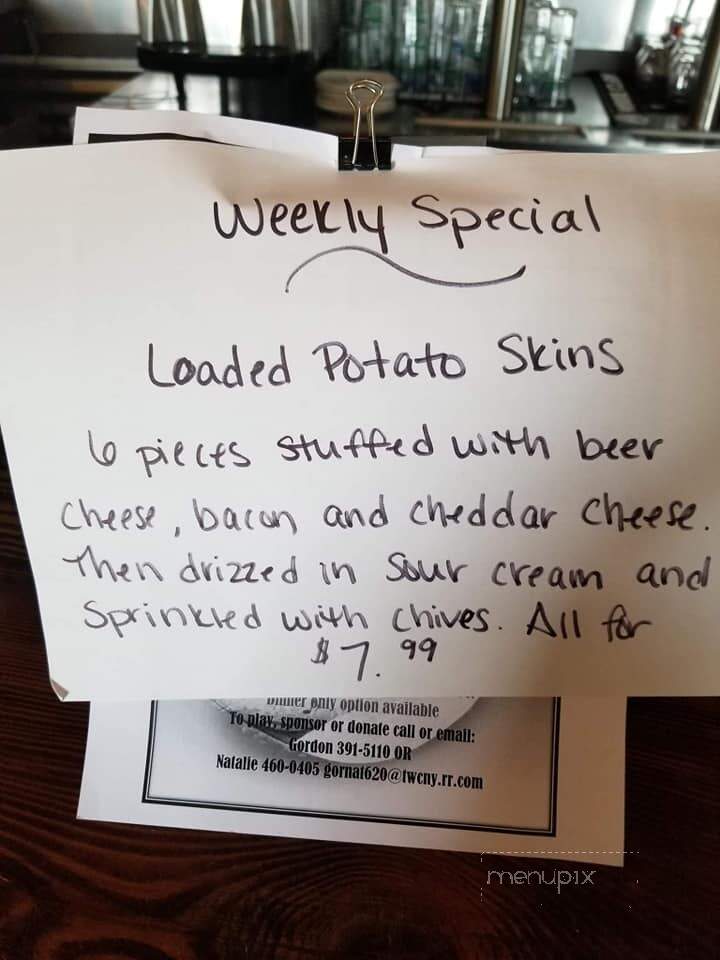 Weekly Special
Loaded Potato Skins
6 pieces stuffed with beer
cheese, bacon and cheddar cheese.
Then drizzed in sour cream and
Sprinkled with chives. All for
$7.99
Dinner only option available
To play, sponsor or donate call or email:
Gordon 391-5110 OR
Natalie 460-0405 gornat620@twcny.rr.com
menupix